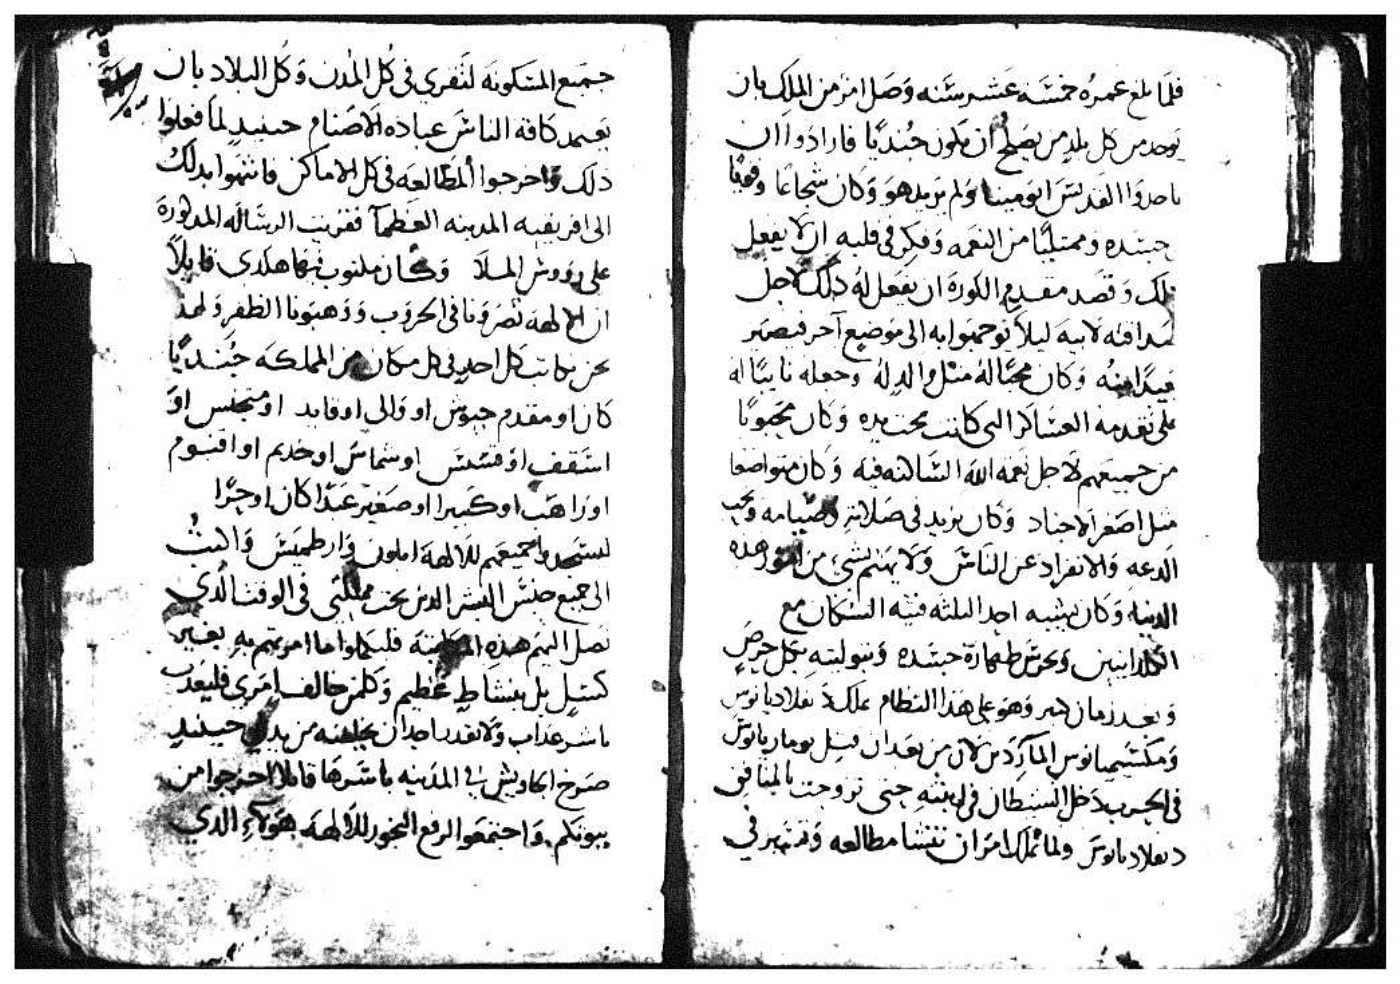 فلما بلغ عمره خمسة عشر سنه وصل امر من الملك بان
يوخد من كل بلد من يصلح ان يكون جنديًا فارادوا ان
ياخدوا القديس ابو مينا ولم يريد هو وكان شجاعًا وقويًا
جسده وممتليًا من النعمه وفكر في قلبه ان لا يفعل
دلك وقصد مقدم الكورة ان يفعل له دلك لاجل
لابيه ليلا يوجهوا به الى موضع آخر فيصير
وكان محبًا له مثل والده وجعله نايبًا له
على تقدمة العساكر التي كانت تحت يده وكان محبوبًا
من جميعهم لاجل نعمة الله الساكنه فيه وكان متواضعا
مثل اصغر الاجناد وكان يزيد في صلاته وصيامه ويحب
الدعه والانفراد عن الناس ولا يهتم بشي من امور هده
الدنيا وكان يشبه احد الملايكه السكان مع
ويحرس طهارة جسده وبتوليته بكل حرص
وبعد زمان وهو على هذا النظام ملك دقلاديانوس
ومكسيميانوس المارد من بعد ان قتل نوماريانوس
في الحرب دخل الشيطان في ابنته حتى تزوجت بالمنافق
دقلاديانوس ولما تملك امر ان تنشا مطالعه وتشتهر في
جميع المسكونه لتقري في كل المدن وكل البلاد بان
يعتمد كافة الناس عبادة الاصنام حينيدٍ لما فعلوا
دلك واخرجوا المطالعه في كل الاماكن فانتهوا بدلك
الى افريقيه المدينه العظما فقريت الرساله المدكورة
على رووس الملا وكان مكتوب فيها هكدى قايلًا
ان الالهه نصرونا في الحروب ووهبونا الظفر ولهدا
نحن نكاتب كل احد في كل مكان من المملكه جنديًا
كان او مقدم جيوش او والي او قايد او متجنس او
اسقف او قسيس او شماس او خديم او اقنوم
او راهب او كبيرا او صغير عبدًا كان او حرًا
ليسجدوا جميعهم للالهه ابلون وارطميس والبث
الى جميع جنس البشر الدين تحت مملكتي في الوقت الدي
تصل اليهم هذه المكاتبة فليكملوا ما امرتهم به بغير
كسل بل بنشاطٍ عظيم وكلمن خالف امري فليعدب
باشر عداب ولا يقدر احد ان يخلصه من يدي حينيدٍ
صرخ الجاويش في المدينه باسرها قايلا اخرجوا من
بيوتكم واجتمعوا لرفع البخور للالهه هولاء الدي